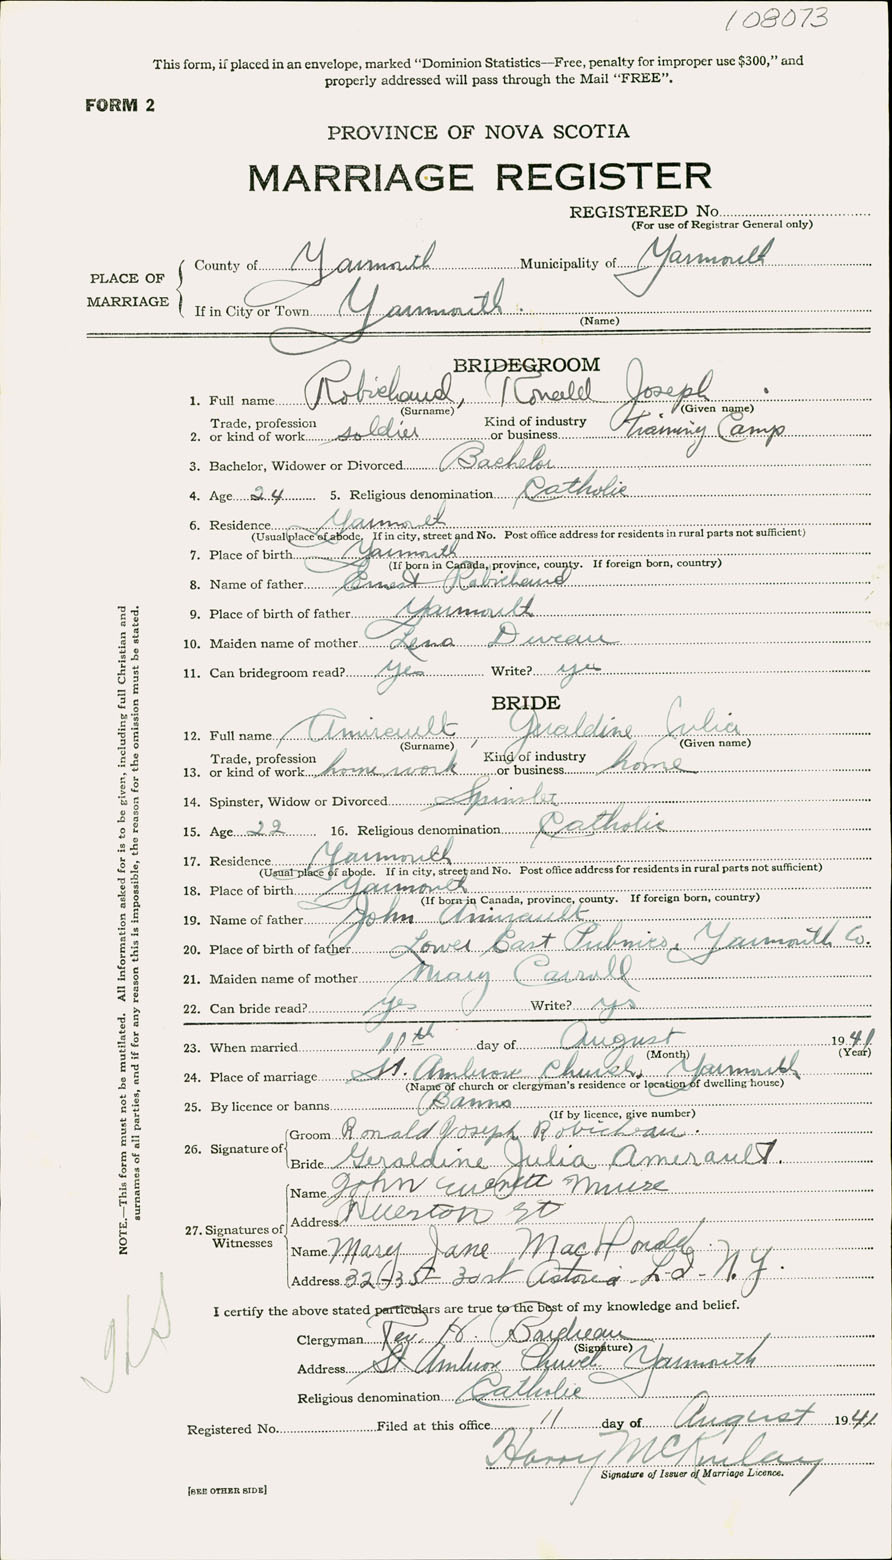 108073
This form, if placed in an envelope, marked “Dominion Statistics—Free, penalty for improper use $300,” and
properly addressed will pass through the Mail “FREE”.
FORM 2
PROVINCE OF NOVA SCOTIA
MARRIAGE REGISTER
REGISTERED No.
(For use of Registrar General only)
PLACE OF MARRIAGE
County of Yarmouth Municipality of Yarmouth
If in City or Town Yarmouth
(Name)
BRIDEGROOM
1. Full name Robichaud, Ronald Joseph
(Surname) (Given name)
2. Trade, profession or kind of work soldier Kind of industry or business Training Camp
3. Bachelor, Widower or Divorced Bachelor
4. Age 24 5. Religious denomination Catholic
6. Residence Yarmouth
(Usual place of abode. If in city, street and No. Post office address for residents in rural parts not sufficient)
7. Place of birth Yarmouth
(If born in Canada, province, county. If foreign born, country)
8. Name of father Ernest Robichaud
9. Place of birth of father Yarmouth
10. Maiden name of mother Lena Duveau
11. Can bridegroom read? yes Write? yes
BRIDE
12. Full name Amirault, Geraldine Julia
(Surname) (Given name)
13. Trade, profession or kind of work home work Kind of industry or business home
14. Spinster, Widow or Divorced Spinster
15. Age 22 16. Religious denomination Catholic
17. Residence Yarmouth
(Usual place of abode. If in city, street and No. Post office address for residents in rural parts not sufficient)
18. Place of birth Yarmouth
(If born in Canada, province, county. If foreign born, country)
19. Name of father John Amirault
20. Place of birth of father Lower East Pubnico, Yarmouth Co.
21. Maiden name of mother Mary Carroll
22. Can bride read? yes Write? yes
23. When married 11th day of August 1941
(Month) (Year)
24. Place of marriage St. Ambrose Church, Yarmouth
(Name of church or clergyman’s residence or location of dwelling house)
25. By licence or banns Banns
(If by licence, give number)
26. Signature of
Groom Ronald Joseph Robicheau.
Bride Geraldine Julia Amerault.
27. Signatures of Witnesses
Name John Everett Muise
Address St
Name Mary Jane MacDonald
Address 32-35 31st Astoria L-I- N.Y.
I certify the above stated particulars are true to the best of my knowledge and belief.
Clergyman Rev. H. Boudreau
(Signature)
Address St Ambrose Church Yarmouth
Religious denomination Catholic
Registered No. Filed at this office 11 day of August 1941
Harry McKinlay
Signature of Issuer of Marriage Licence.
[SEE OTHER SIDE]
NOTE.—This form must not be mutilated. All information asked for is to be given, including full Christian and
surnames of all parties, and if for any reason this is impossible, the reason for the omission must be stated.